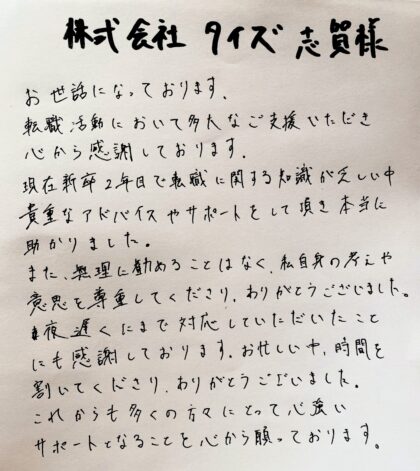 株式会社 タイズ 志賀様
お世話になっております.
転職活動において多大なご支援いただき
心から感謝しております.
現在新卒2年目で転職に関する知識が乏しい中
貴重なアドバイスやサポートをして頂き本当に
助かりました。
また、無理に勧めることはなく、私自身の考えや
意思を尊重してくださり、ありがとうございました。
夜遅くにまで対応していただいたこと
にも感謝しております。お忙しい中、時間を
割いてくださり、ありがとうございました。
これからも多くの方々にとって心強い
サポートとなることを心から願っております。